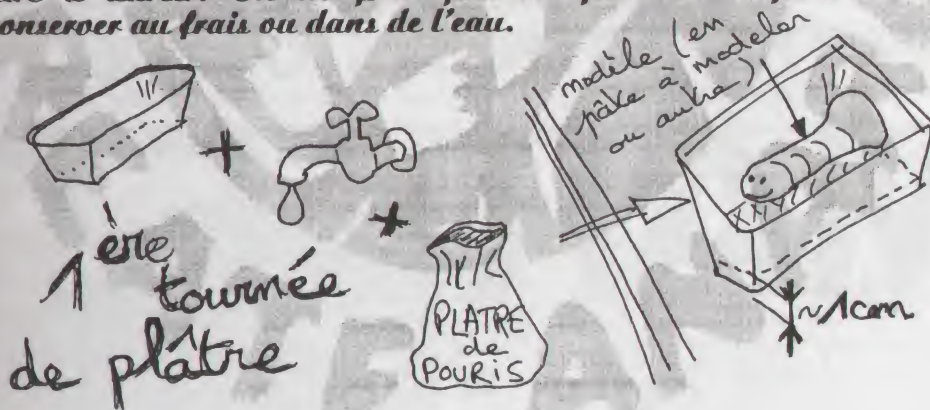 onserver au frais ou dans de l'eau.
modèle (en
pâte à modeler
ou autre)
1ère
tournée
de plâtre
PLATRE
de
POURIS
~1cm